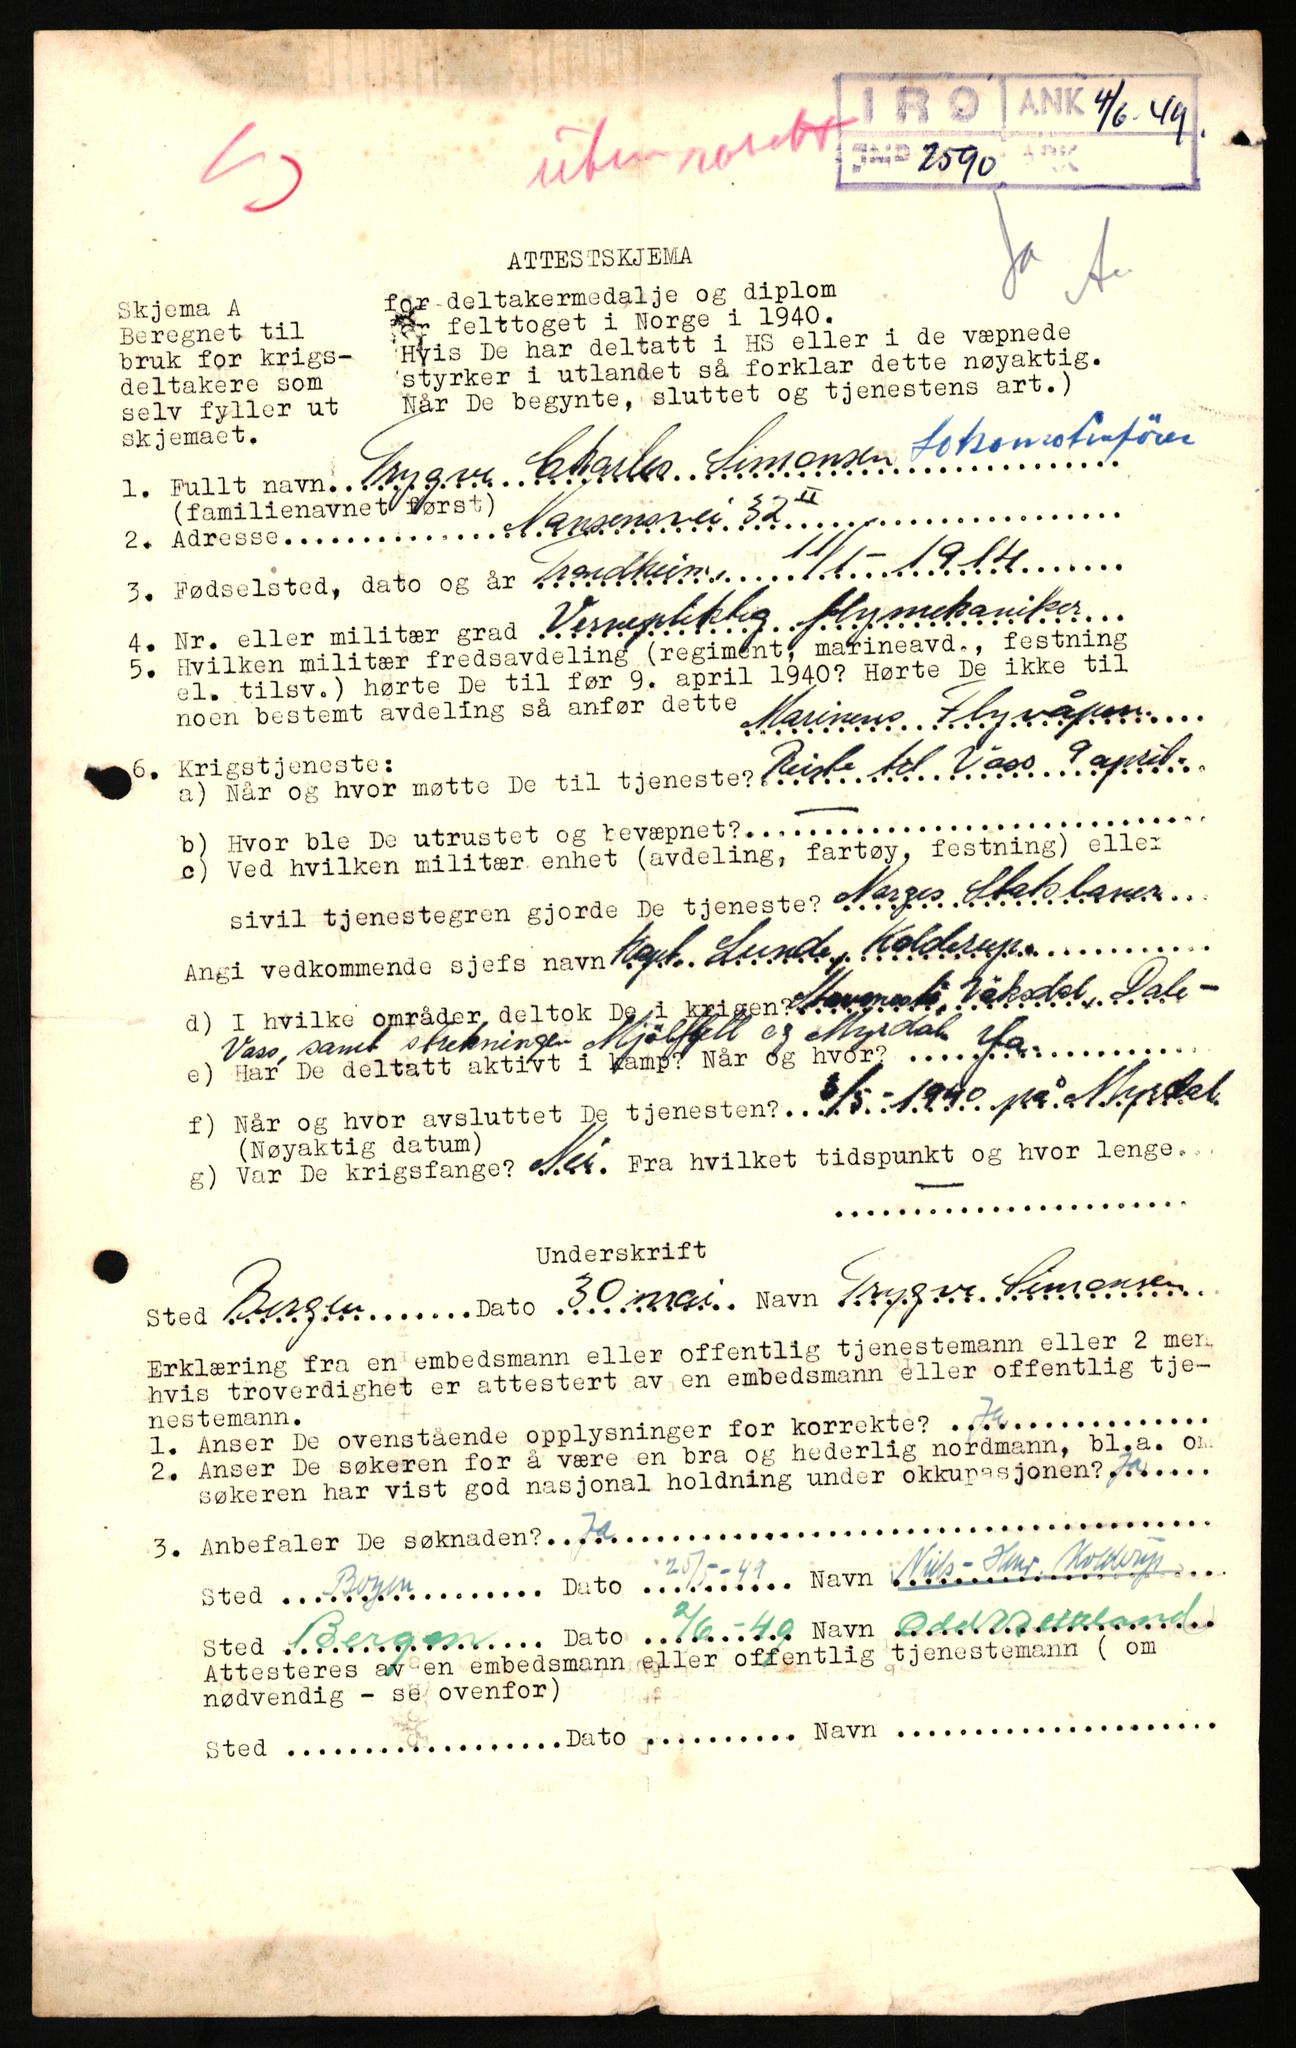 IRO ANK 4/6-49.
JNR 2590 ARK
uten rosett
Ja
ATTESTSKJEMA
for deltakermedalje og diplom
for felttoget i Norge i 1940.
Hvis De har deltatt i HS eller i de væpnede
styrker i utlandet så forklar dette nøyaktig.
Når De begynte, sluttet og tjenestens art.)
Skjema A
Beregnet til
bruk for krigs-
deltakere som
selv fyller ut
skjemaet.
1. Fullt navn Trygve Charles Simonsen Lokomotivfører
(familienavnet først)
2. Adresse Nansensvei 32 II
3. Fødselsted, dato og år Trondheim, 11/1-1914
4. Nr. eller militær grad Vernepliktig flymekaniker
5. Hvilken militær fredsavdeling (regiment, marineavd., festning
el. tilsv.) hørte De til før 9. april 1940? Hørte De ikke til
noen bestemt avdeling så anfør dette Marinens Flyvåpen.
6. Krigstjeneste:
a) Når og hvor møtte De til tjeneste? Reiste til Voss 9 april.
b) Hvor ble De utrustet og bevæpnet? —
c) Ved hvilken militær enhet (avdeling, fartøy, festning) eller
sivil tjenestegren gjorde De tjeneste? Norges Statsbaner
Angi vedkommende sjefs navn Kapt. Lunde, Kolderup.
d) I hvilke områder deltok De i krigen? Vaksdal, Dale-
Voss, samt strekningen Mjölfjell og Myrdal
e) Har De deltatt aktivt i kamp? Når og hvor? Ja.
f) Når og hvor avsluttet De tjenesten? /5-1940 på Myrdal
(Nøyaktig datum)
g) Var De krigsfange? Nei. Fra hvilket tidspunkt og hvor lenge
—
Underskrift
Sted Bergen Dato 30 mai Navn Trygve Simonsen
Erklæring fra en embedsmann eller offentlig tjenestemann eller 2 men
hvis troverdighet er attestert av en embedsmann eller offentlig tje-
nestemann.
1. Anser De ovenstående opplysninger for korrekte? Ja
2. Anser De søkeren for å være en bra og hederlig nordmann, bl.a. om
søkeren har vist god nasjonal holdning under okkupasjonen? Ja
3. Anbefaler De søknaden? Ja
Sted Bergen Dato 25/5-49 Navn Niels-Henr. Kolderup
Sted Bergen Dato 2/6-49 Navn Odd
Attesteres av en embedsmann eller offentlig tjenestemann ( om
nødvendig - se ovenfor)
Sted Dato Navn